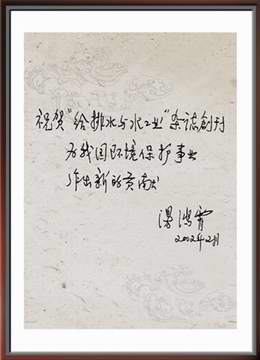 祝贺"给排水与水工业"杂志创刊
为我国环境保护事业
作出新的贡献
汤鸿霄
2002年2月